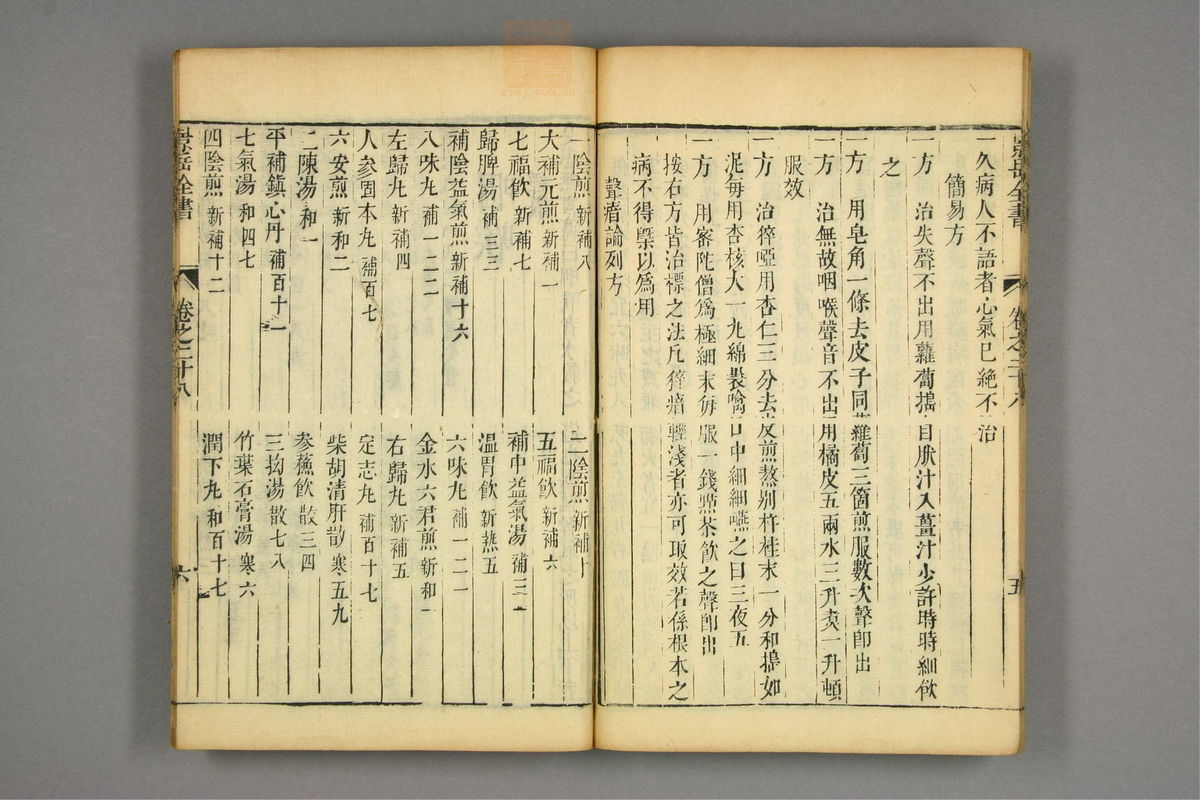 一久病人不語者心氣已絕不治
簡易方
一方 治失聲不出用蘿蔔搗自然汁入薑汁少許時時細飲
之
一方 用皂角一條去皮子同蘿蔔三箇煎服數次聲卽出
一方 治無故咽喉聲音不出用橘皮五兩水三升煑一升頓
服效
一方 治猝啞用杏仁三分去皮煎熬别杵桂末一分和搗如
泥每用杏核大一丸綿裹噙口中細細嚥之日三夜五
一方 用密陀僧爲極細末每服一錢點茶飲之聲卽出
按右方皆治標之法凡猝瘖輕淺者亦可取效若係根本之
病不得槩以爲用
聲瘖論列方
一陰煎 新補八 二陰煎 新補十
大補元煎 新補一 五福飲 新補六
七福飲 新補七 補中益氣湯 補三一
歸脾湯 補三三 溫胃飲 新熱五
補陰益氣煎 新補十六 六味丸 補一二一
八味丸 補一二二 金水六君煎 新和一
左歸丸 新補四 右歸丸 新補五
人參固本丸 補百七 定志丸 補百十七
六安煎 新和二 柴胡清肝散 寒五九
二陳湯 和一 參蘇飲 散三四
平補鎭心丹 補百十一 三拗湯 散七八
七氣湯 和四七 竹葉石膏湯 寒六
四陰煎 新補十二 潤下丸 和百十七
景岳全書 卷之二十八 六
景岳全書 卷之二十八 五